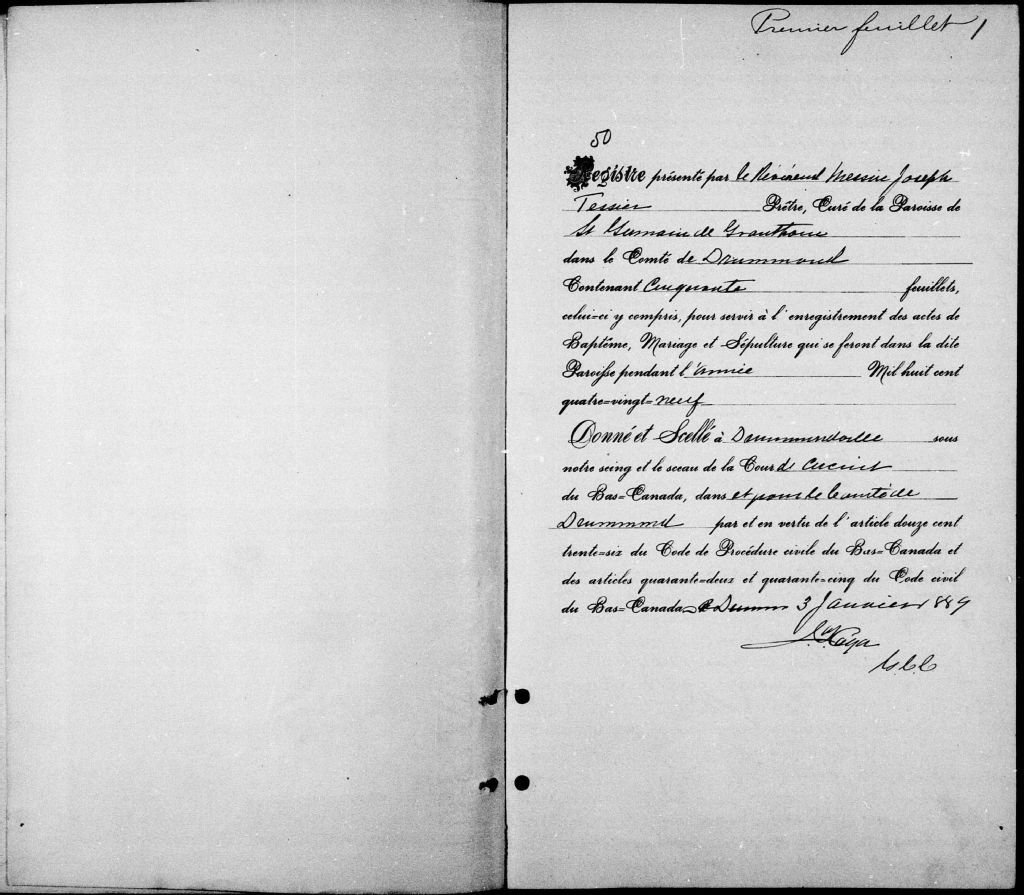 Premier feuillet 1
50
Registre présenté par le Révérend Messire Joseph
Tessier Prêtre, Curé de la Paroisse de
St Germain de Grantham
dans le Comté de Drummond
Contenant Cinquante feuillets,
celui=ci y compris, pour servir à l'enregistrement des actes de
Baptême, Mariage et Sépulture qui se feront dans la dite
Paroisse pendant l'année Mil huit cent
quatre=vingt=neuf
Donné et Scellé à Drummondville sous
notre seing et le sceau de la Cour de Circuit
du Bas=Canada, dans et pour le Comté de
Drummond par et en vertu de l'article douze cent
trente=six du Code de Procédure civile du Bas=Canada et
des articles quarante=deux et quarante=cinq du Code civil
du Bas=Canada 3 Janvier 1889
C.C.C